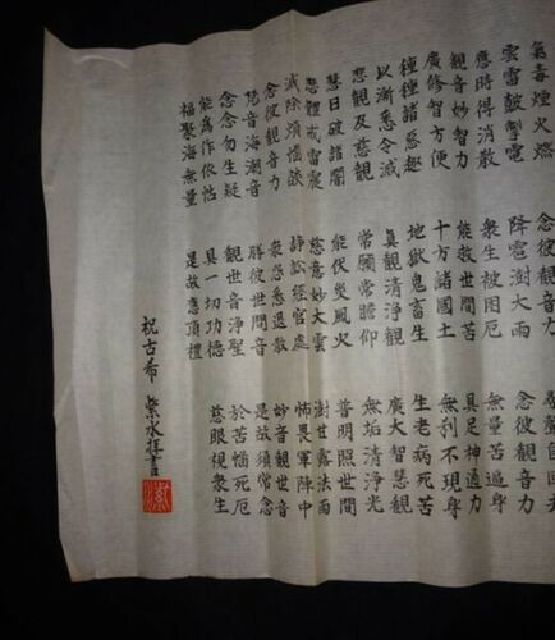 氣毒煙火燃 念彼觀音力 尋聲自回去
雲雷鼓掣電 降雹澍大雨 念彼觀音力
應時得消散 衆生被困厄 無量苦逼身
觀音妙智力 能救世間苦 具足神通力
廣修智方便 十方諸國土 無刹不現身
種種諸惡趣 地獄鬼畜生 生老病死苦
以漸悉令滅 眞觀清淨觀 廣大智慧觀
悲觀及慈觀 常願常瞻仰 無垢清淨光
慧日破諸闇 能伏災風火 普明照世間
悲體戒雷震 慈意妙大雲 澍甘露法雨
滅除煩惱燄 諍訟經官處 怖畏軍陣中
念彼觀音力 衆怨悉退散 妙音觀世音
梵音海潮音 勝彼世間音 是故須常念
念念勿生疑 觀世音淨聖 於苦惱死厄
能為作依怙 具一切功德 慈眼視衆生
福聚海無量 是故應頂禮
祝古希 紫水拝書